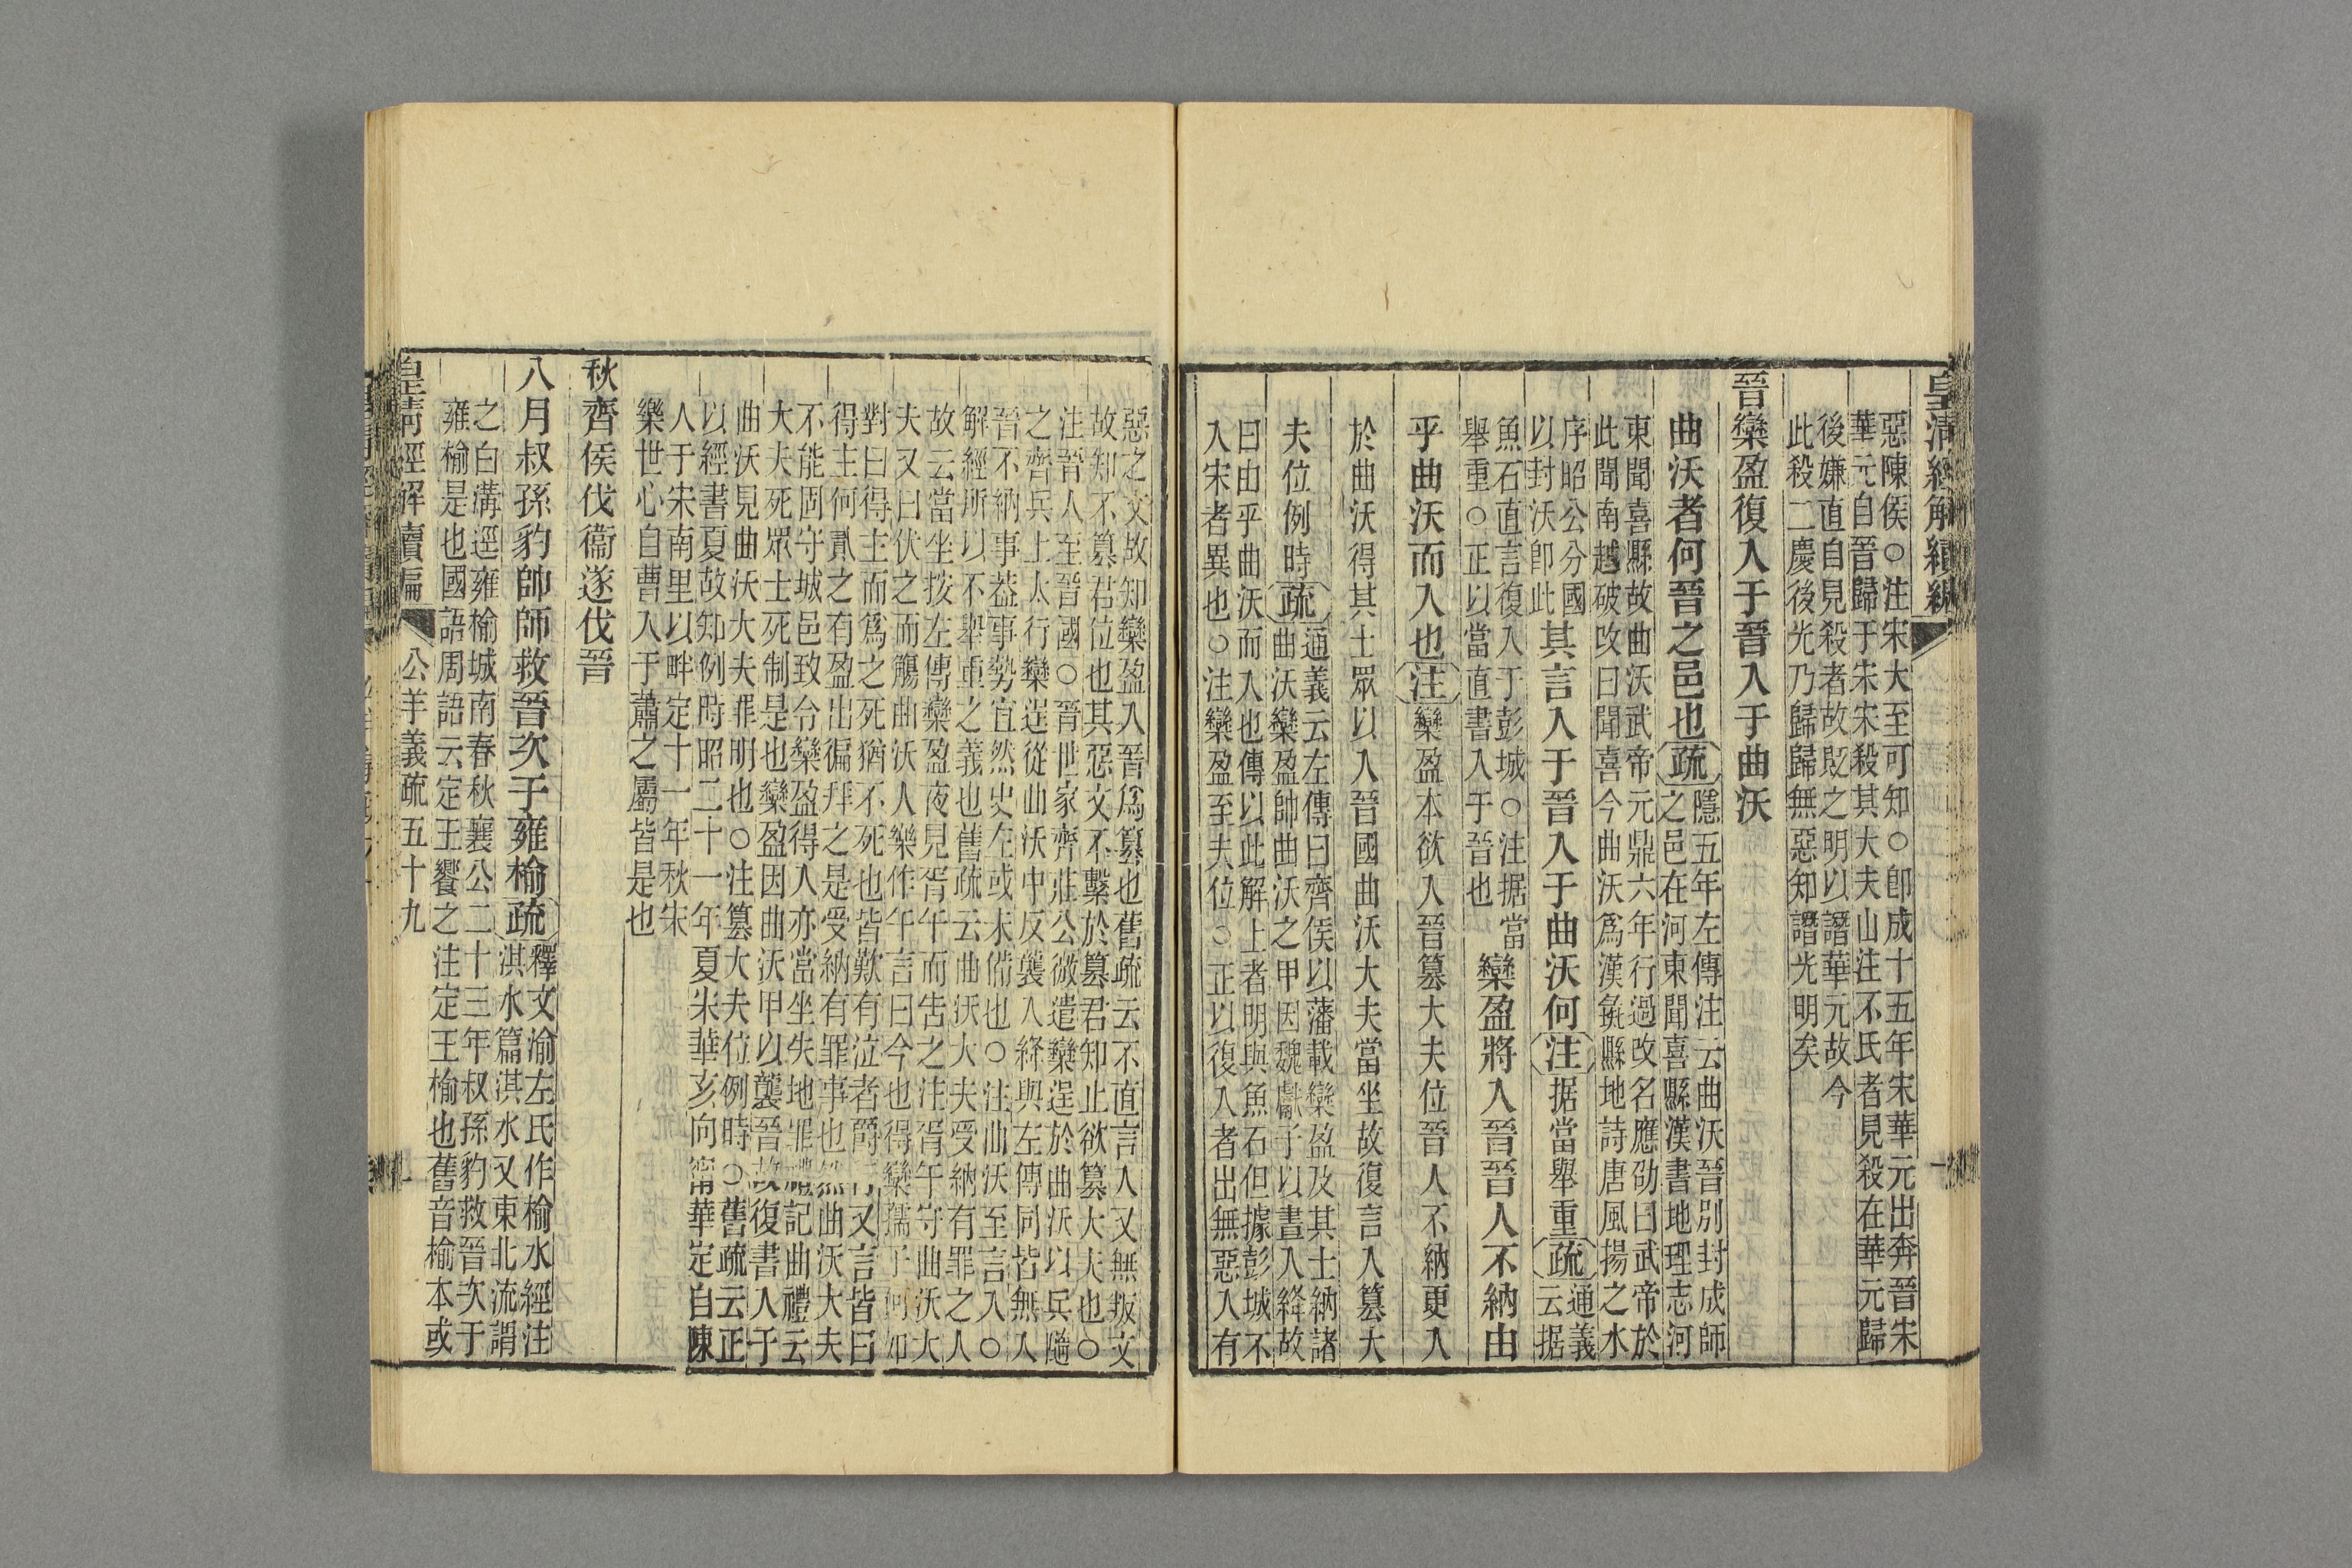 皇清經解續編
惡陳侯○注宋大至可知○卽成十五年宋華元出奔晉宋
華元自晉歸于宋宋殺其大夫山注不氏者見殺在華元歸
後嫌直自見殺者故貶之明以譖華元故今
此殺二慶後光乃歸歸無惡知譖光明矣
晉欒盈復入于晉入于曲沃
曲沃者何晉之邑也疏隱五年左傳注云曲沃晉別封成師
之邑在河東聞喜縣漢書地理志河
東聞喜縣故曲沃武帝元鼎六年行過改名應劭曰武帝於
此聞南越破改曰聞喜今曲沃爲漢絳縣地詩唐風揚之水
序昭公分國
以封沃卽此其言入于晉入于曲沃何注据當舉重疏通義
云据
魚石直言復入于彭城○注据當
舉重○正以當直書入于晉也欒盈將入晉晉人不納由
乎曲沃而入也注欒盈本欲入晉篡大夫位晉人不納更入
於曲沃得其士眾以入晉國曲沃大夫當坐故復言入篡大
夫位例時疏通義云左傳曰齊侯以藩載欒盈及其士納諸
曲沃欒盈帥曲沃之甲因魏獻子以晝入絳故
曰由乎曲沃而入也傳以此解上者明與魚石但據彭城不
入宋者異也○注欒盈至夫位○正以復入者出無惡入有
惡之文故知欒盈入晉爲篡也舊疏云不直言入又無叛文
故知不篡君位也其惡文不繫於篡君知止欲篡大夫也○
注晉人至晉國○晉世家齊莊公微遣欒逞於曲沃以兵隨
之齊兵上太行欒逞從曲沃中反襲入絳與左傳同皆無人
晉不納事葢事勢宜然史左或未備也○注曲沃至言入○
解經所以不舉重之義也舊疏云曲沃大夫受納有罪之人
故云當坐按左傳欒盈夜見胥午而告之注胥午守曲沃大
夫又曰伏之而觴曲沃人樂作午言曰今也得欒孺子何如
對曰得主而爲之死猶不死也皆歎有泣者爵行又言皆曰
得主何貳之有盈出徧拜之是受納有罪事也然曲沃大夫
不能固守城邑致令欒盈得入亦當坐失地罪禮記曲禮云
大夫死眾士死制是也欒盈因曲沃甲以襲晉故復書入于
曲沃見曲沃大夫罪明也○注篡大夫位例時○舊疏云正
以經書夏故知例時昭二十一年夏宋華亥向甯華定自陳
人于宋南里以畔定十一年秋宋
樂世心自曹入于蕭之屬皆是也
秋齊侯伐衞遂伐晉
八月叔孫豹帥師救晉次于雍榆疏釋文渝左氏作榆水經注
淇水篇淇水又東北流謂
之白溝逕雍榆城南春秋襄公二十三年叔孫豹救晉次于
雍榆是也國語周語云定王饗之注定王榆也舊音榆本或
皇清經解續編
公羊義疏五十九